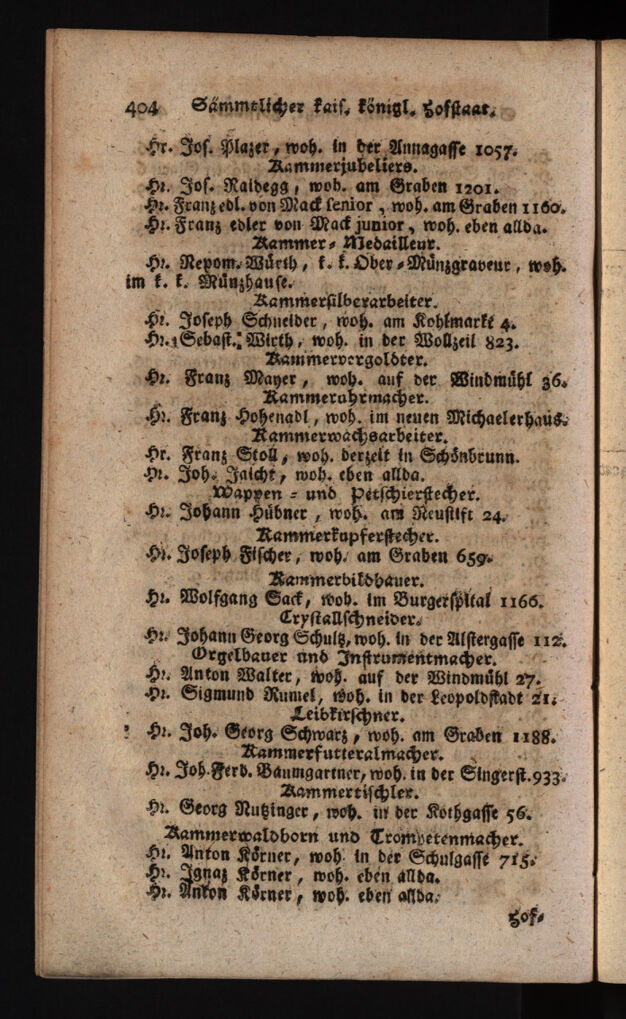 404 Sämmtlicher kais. königl. Hofstaat.
Hr. Jos. Plazer, woh. in der Annagasse 1057.
Kammerjubeliers.
Hr. Jos. Naidegg, woh. am Graben 1201.
Hr. Franz edl. von Mack senior, woh. am Graben 1160.
Hr. Franz edler von Mack junior, woh. eben allda.
Kammer-Medailleur.
Hr. Nepom. Würth, k. k. Ober-Münzgraveur, woh.
im k. k. Münzhause.
Kammersilberarbeiter.
Hr. Joseph Schneider, woh. am Kohlmarkt 4.
Hr. Sebast. Wirth, woh. in der Wollzeil 823.
Kammervergoldter.
Hr. Franz Mayer, woh. auf der Windmühl 36.
Kammeruhrmacher.
Hr. Franz Hohenadl, woh. im neuen Michaelerhaus.
Kammerwachsarbeiter.
Hr. Franz Stoll, woh. derzeit in Schönbrunn.
Hr. Joh. Jaicht, woh. eben allda.
Wappen- und Petschierstecher.
Hr. Johann Hübner, woh. am Neustift 24.
Kammerkupferstecher.
Hr. Joseph Fischer, woh. am Graben 659.
Kammerbildhauer.
Hr. Wolfgang Sack, woh. im Burgerspital 1166.
Crystallschneider.
Hr. Johann Georg Schultz, woh. in der Alstergasse 112.
Orgelbauer und Instrumentmacher.
Hr. Anton Walter, woh. auf der Windmühl 27.
Hr. Sigmund Rumel, woh. in der Leopoldstadt 21.
Leibkirschner.
Hr. Joh. Georg Schwarz, woh. am Graben 1188.
Kammerfutteralmacher.
Hr. Joh. Ferd. Baumgartner, woh. in der Singerst. 933.
Kammertischler.
Hr. Georg Nutzinger, woh. in der Kothgasse 56.
Kammerwaldhorn und Trompetenmacher.
Hr. Anton Körner, woh. in der Schulgasse 715.
Hr. Ignaz Körner, woh. eben allda.
Hr. Anton Körner, woh. eben allda.
Hof-